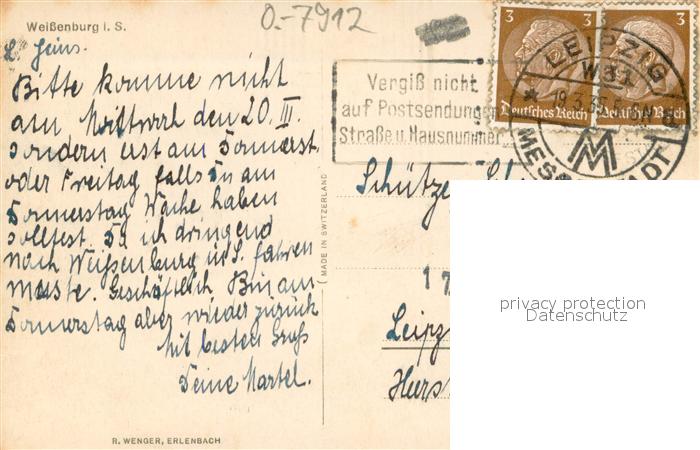 O.-7912
Weißenburg i. S.
L. Heins.
Bitte komme nicht
am Mittwoch den 20. III.
sondern erst am Donnerst.
oder Freitag falls Du am
Donnerstag Wache haben
solltest. Da ich dringend
nach Weißenburg in S. fahren
musste. Geschäftlich. Bin am
Donnerstag aber wieder zurück
Mit besten Gruß
Deine Martel.
R. WENGER, ERLENBACH
( MADE IN SWITZERLAND
Vergiß nicht
auf Postsendungen
Straße u. Hausnummer
3 3 3 3
Deutsches Reich Deutsches Reich
LEIPZIG
W 31
19.3.
MM
Schütze
17
Leipz
privacy protection
Datenschutz